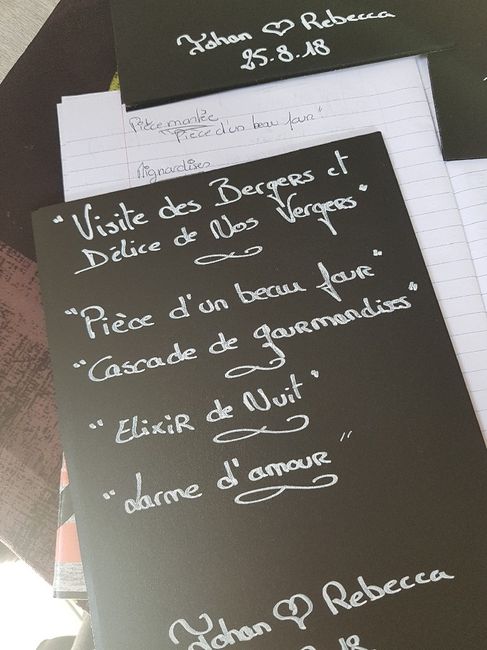 Johan ♡ Rebecca
25.8.18
Pièce montée
Pièce d'un beau jour"
Mignardises
"Visite des Bergers et
Délice de Nos Vergers"
"Pièce d'un beau jour"
"Cascade de gourmandises"
"Elixir de Nuit"
"Larme d'amour"
Johan ♡ Rebecca
8.18